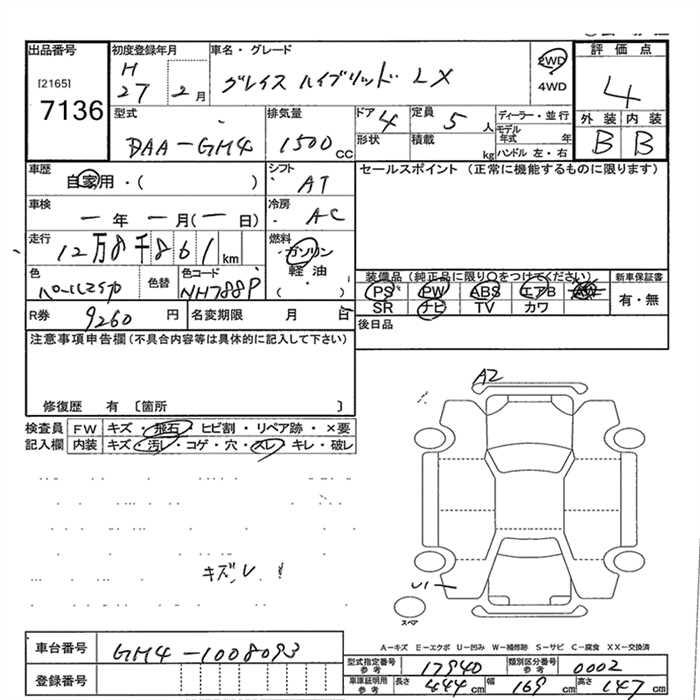 出品番号 初度登録年月 車名・グレード 評価点
[2165] H 27 2月 グレイス ハイブリッド LX 2WD 4
7136 4WD
型式 排気量 ドア 4 定員 5人 ディーラー・並行 外装 内装
DAA-GM4 1500cc 形状 積載 kg モデル年式 年 B B
ハンドル 左・右
車歴 シフト セールスポイント (正常に機能するものに限ります)
自家用・( ) AT
車検 冷房
一年 一月(一日) AC
走行 燃料
12万8千861km ガソリン
軽油
色 色替 色コード ( ) 装備品(純正品に限り○をつけてください) 新車保証書
NH788P PS PW ABS エアB AW 有・無
R券 9260円 名変期限 月 日 SR ナビ TV カワ
注意事項申告欄(不具合内容等は具体的に記入して下さい) 後日品
修復歴 有〔箇所 〕
A2
検査員 FW キズ・飛石・ヒビ割・リペア跡・×要
記入欄 内装 キズ・汚レ・コゲ・穴・スレ・キレ・破レ
キズ、レ
U1
スペア
A-キズ E-エクボ U-凹み W-補修跡 S-サビ C-腐食 XX-交換済
車台番号 GM4-1008093
型式指定番号 参考 17940 類別区分番号 参考 0002
登録番号 車庫証明用 参考 長さ 444cm 幅 169cm 高さ 147cm